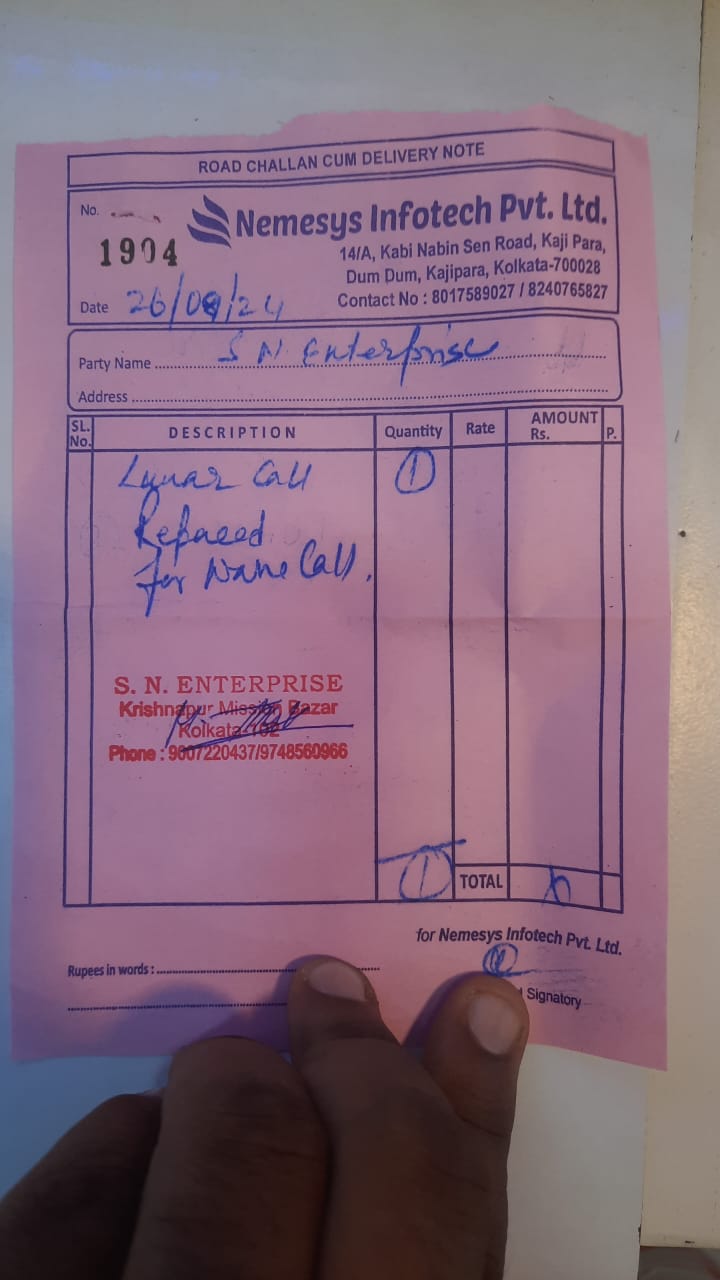 ROAD CHALLAN CUM DELIVERY NOTE
No.
1904
Nemesys Infotech Pvt. Ltd.
14/A, Kabi Nabin Sen Road, Kaji Para,
Dum Dum, Kajipara, Kolkata-700028
Contact No : 8017589027 / 8240765827
Date 26/08/24
Party Name S N Enterprise
Address
SL. No. DESCRIPTION Quantity Rate AMOUNT Rs. P.
Lunar Call 1
Repaced
for Name Call.
S. N. ENTERPRISE
Krishnapur Mission Bazar
Kolkata
Phone : 9007220437/9748560966
1 TOTAL
for Nemesys Infotech Pvt. Ltd.
Rupees in words :
Signatory